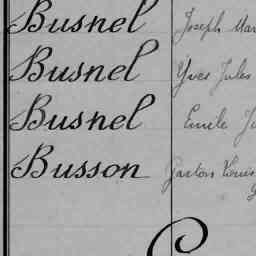 Busnel Joseph Mar
Busnel Yves Jules
Busnel Emile Ju
Busson Gaston Louis